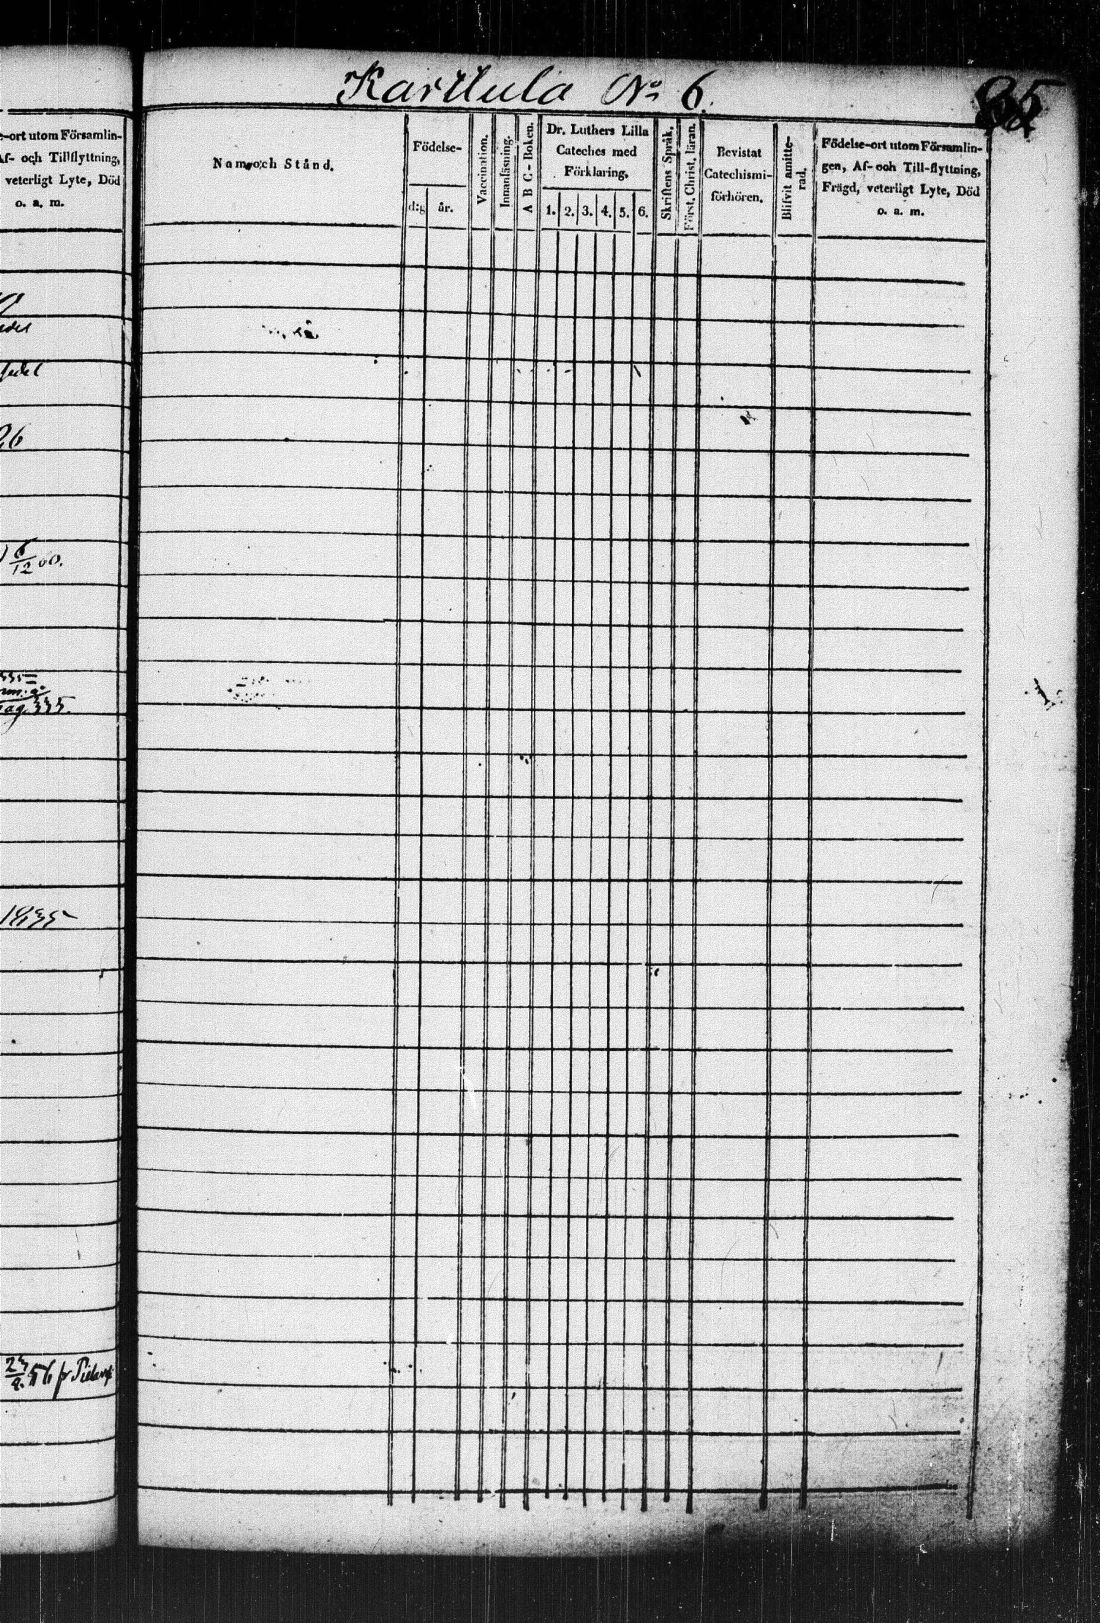 Karttula No 6.
85
e-ort utom Församlin-
Af- och Tillflyttning,
veterligt Lyte, Död
o. a. m.
Namn och Stånd.
Födelse-
d:g
år.
Vaccination.
Innanläsning.
A B C - Boken.
Dr. Luthers Lilla
Cateches med
Förklaring.
1. 2. 3. 4. 5. 6.
Skriftens Språk.
Först. Christ. läran.
Bevistat
Catechismi-
förhören.
Blifvit amitte-
rad.
Födelse-ort utom Församlin-
gen, Af- och Till-flyttning,
Frägd, veterligt Lyte, Död
o. a. m.
26
6/12 60.
pag. 335.
1855